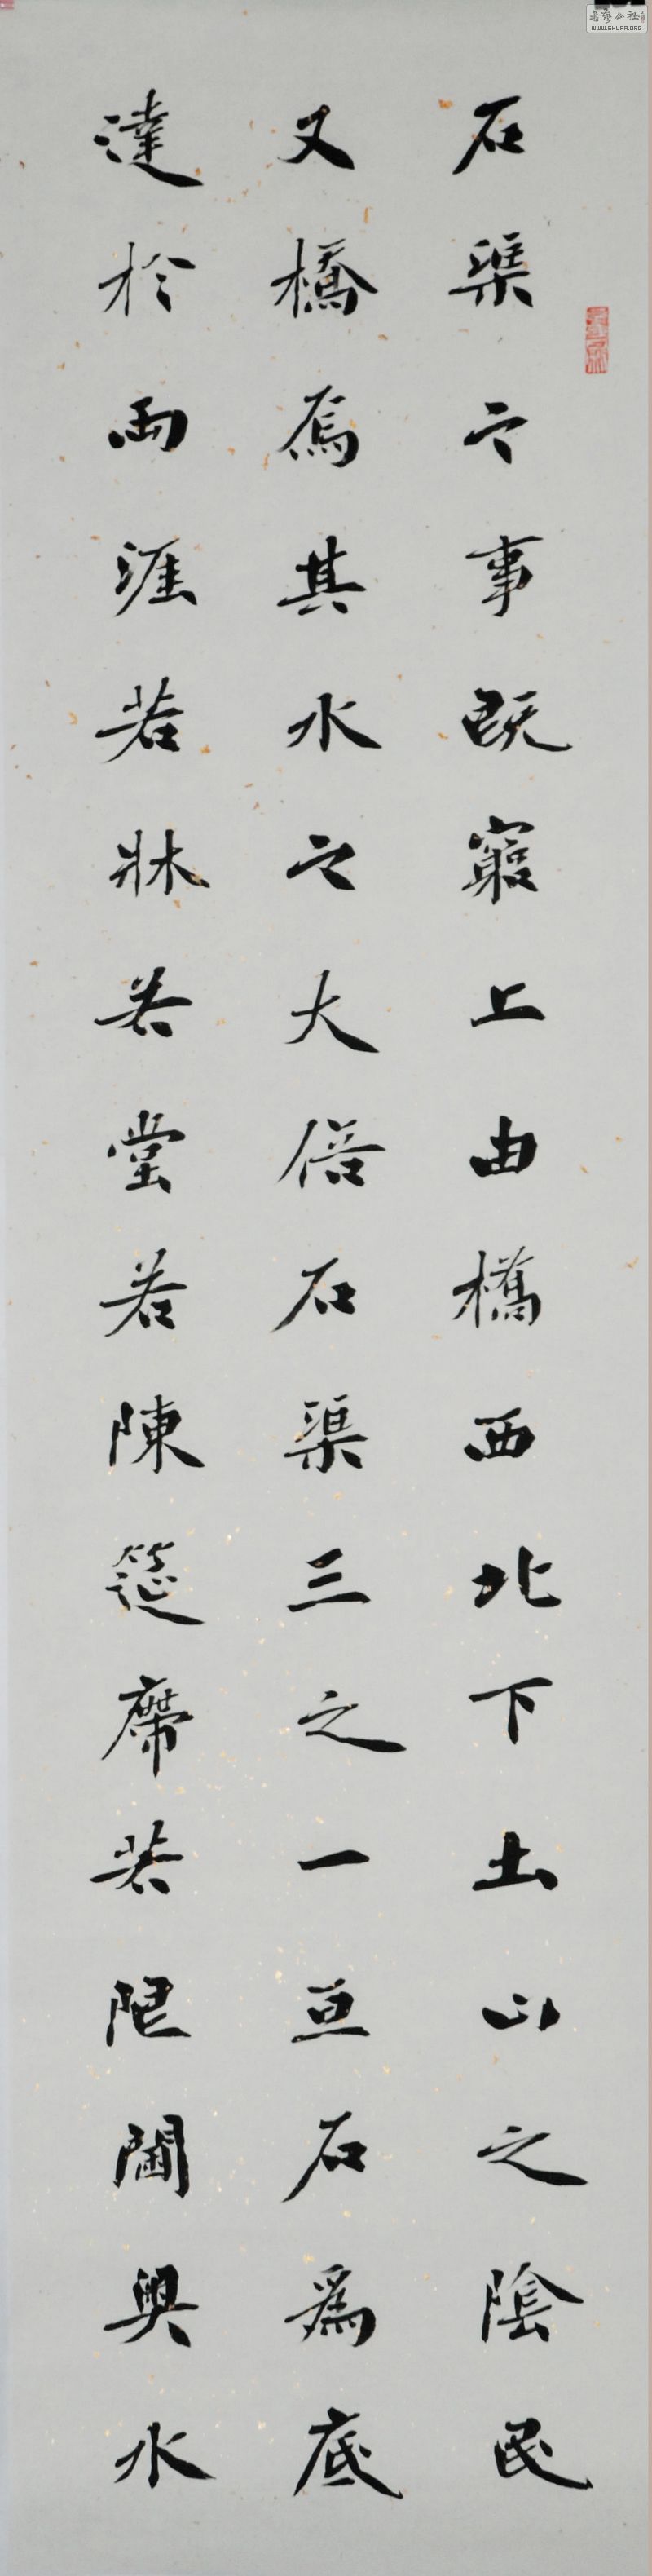 石渠之事既窮上由橋西北下土山之陰民
又橋焉其水之大倍石渠三之一亘石為底
達於兩涯若牀若堂若陳筵席若限閫奧水
WWW.SHUFA.ORG